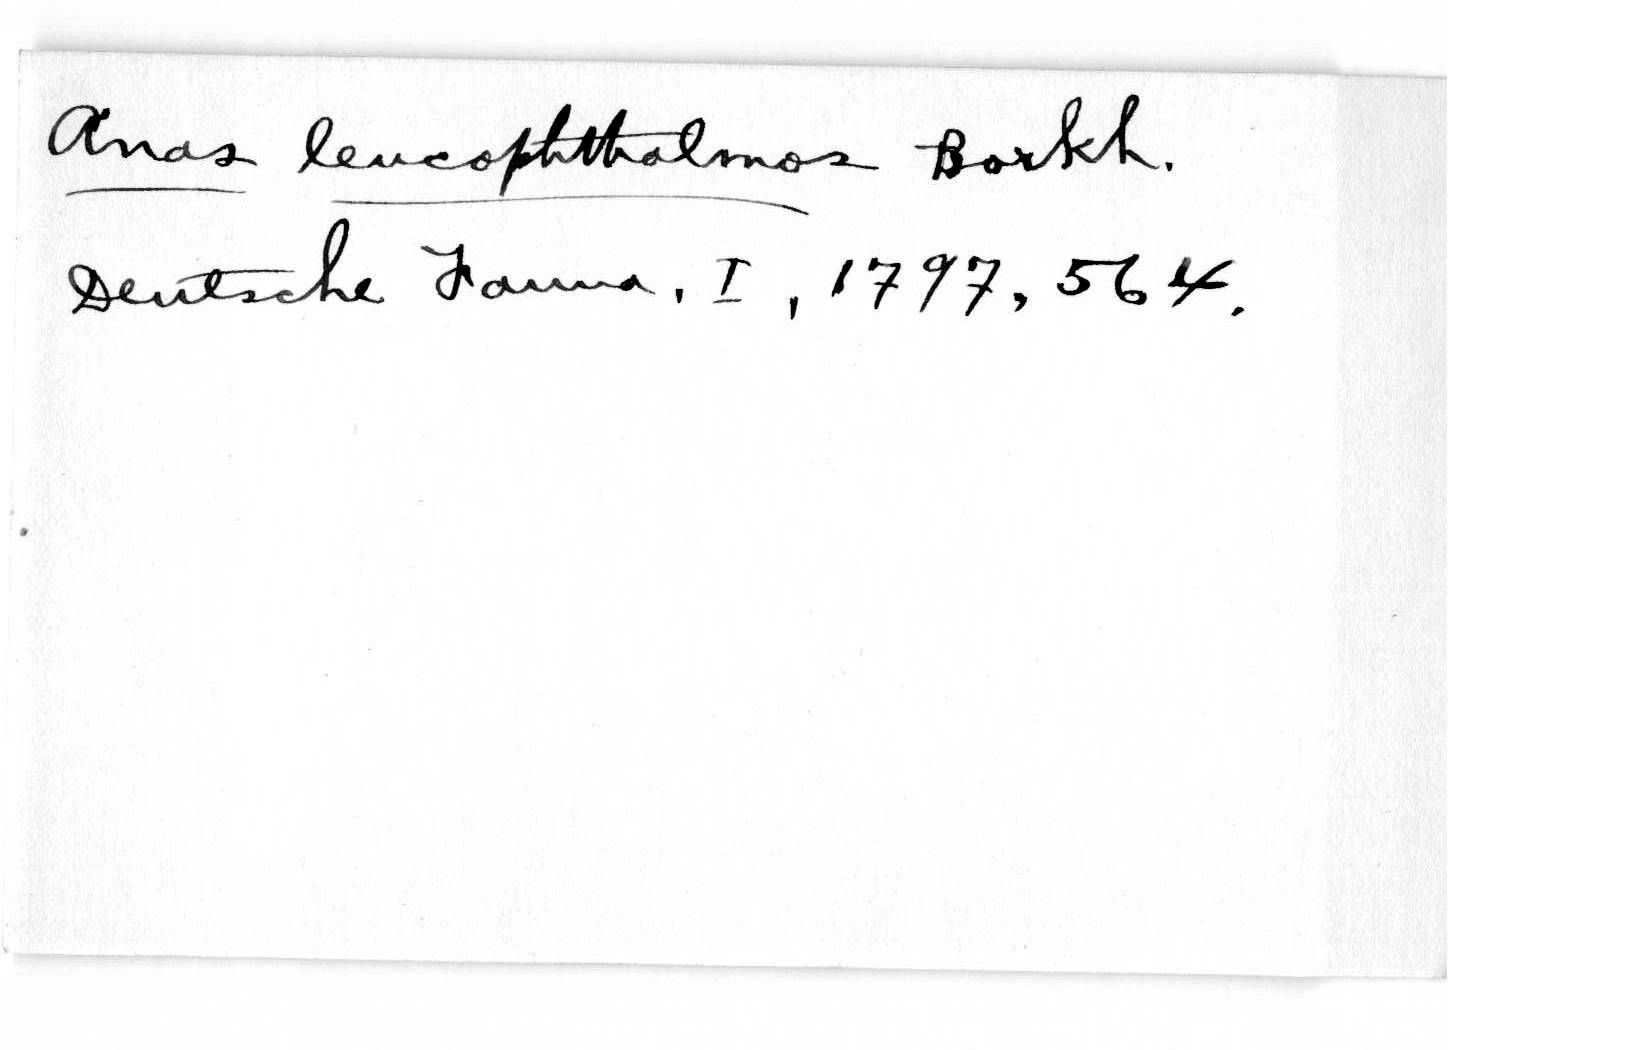 Anas leucophthalmos Borkh.
Deutsche Fauna, I, 1797, 564.